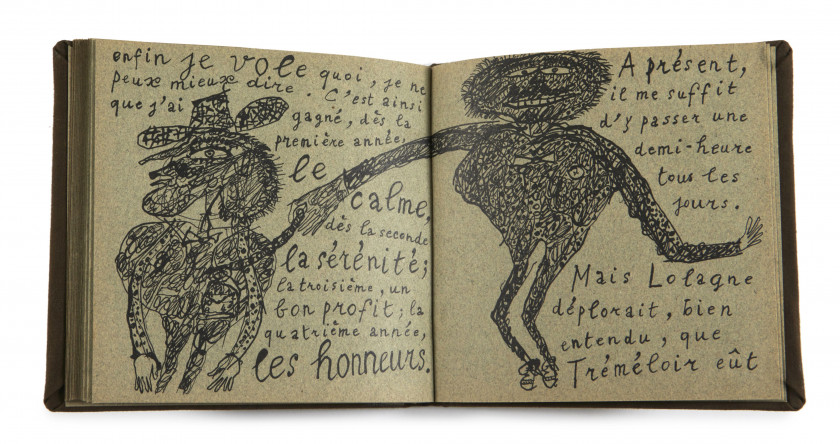 enfin je vole quoi, je ne
peux mieux dire. C'est ainsi
que j'ai
gagné, dès la
première année,
le
calme,
dès la seconde
la sérénité;
la troisième, un
bon profit; la
quatrième année,
les honneurs.
A présent,
il me suffit
d'y passer une
demi-heure
tous les
jours.
Mais Lolagne
déplorait, bien
entendu, que
Tréméloir eût